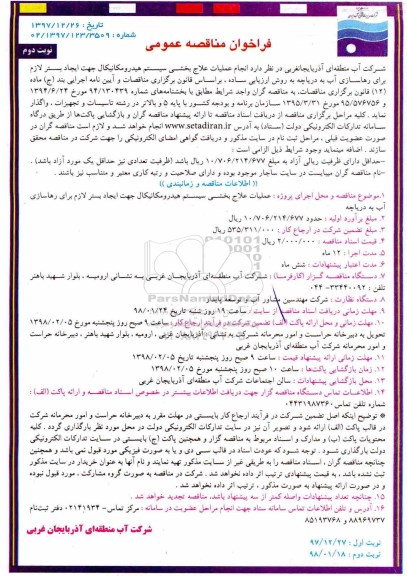 تاریخ : ۱۳۹۷/۱۲/۲۶
شماره : ۰۲/۱۳۹۷/۱۲۳/۳۵۰۹
فراخوان مناقصه عمومی
نوبت دوم
شرکت آب منطقه‌ای آذربایجانغربی در نظر دارد انجام عملیات علاج بخشی سیستم هیدرومکانیکال جهت ایجاد بستر لازم
برای رهاسازی آب به دریاچه به روش ارزیابی ساده ، براساس قانون برگزاری مناقصات و آیین نامه اجرایی بند (ج) ماده
(۱۲) قانون برگزاری مناقصات، به مناقصه گران واجد شرایط مطابق با بخشنامه‌های شماره ۹۴/۱۳۰۴۳۹ مورخ ۱۳۹۴/۶/۲۴
و ۹۵/۵۷۶۷۵۶ مورخ ۱۳۹۵/۳/۳۱ سازمان برنامه و بودجه کشور با پایه ۵ و بالاتر در رشته تاسیسات و تجهیزات ، واگذار
نماید . کلیه مراحل برگزاری مناقصه از دریافت اسناد مناقصه تا ارائه پیشنهاد مناقصه گران و بازگشایی پاکت‌ها از طریق درگاه
سامانه تدارکات الکترونیکی دولت (ستاد) به آدرس www.setadiran.ir انجام خواهد شد و لازم است مناقصه گران در
صورت عضویت قبلی ، مراحل ثبت نام در سایت مذکور و دریافت گواهی امضای الکترونیکی را جهت شرکت در مناقصه محقق
سازند . اضافه مینماید وجود شرایط ذیل الزامی است :
-حداقل دارای ظرفیت ریالی آزاد به مبلغ ۱۰/۷۰۶/۲۱۴/۶۷۷ ریال باشد (ظرفیت تعدادی نیز حداقل یک مورد آزاد باشد) .
-نام مناقصه گران میبایست در سایت ساجار موجود بوده و دارای صلاحیت و رتبه کاری معتبر و متناسب نیز باشند .
(( اطلاعات مناقصه و زمانبندی ))
۱.موضوع مناقصه و محل اجرای پروژه : عملیات علاج بخشی سیستم هیدرومکانیکال جهت ایجاد بستر لازم برای رهاسازی
آب به دریاچه
۲. مبلغ برآورد اولیه : حدود ۱۰/۷۰۶/۲۱۴/۶۷۷ ریال
۳. مبلغ تضمین شرکت در ارجاع کار : ۵۳۵/۳۱۱/۰۰۰ ریال
۴. قیمت اسناد مناقصه : ۲/۰۰۰/۰۰۰ ریال
۵. مدت اجرا : ۱۲ ماه
۶. مدت اعتبار پیشنهادات : شش ماه
۷. دستگاه مناقصه گزار (کارفرما) : شرکت آب منطقه‌ای آذربایجان غربی به نشانی ارومیه ، بلوار شهید باهنر
تلفن : ۳۳۴۴۰۰۹۲-۰۴۴
۸. دستگاه نظارت : شرکت مهندسین مشاور آب و توسعه پایدار
۹. مهلت زمانی دریافت اسناد مناقصه از سایت : ساعت ۱۹ روز شنبه تاریخ ۹۸/۰۱/۲۴
۱۰. مهلت زمانی و محل ارائه پاکت (الف) تضمین شرکت در فرآیند ارجاع کار : ساعت ۹ صبح روز پنجشنبه مورخ ۱۳۹۸/۰۲/۰۵
تحویل به دبیرخانه حراست و امور محرمانه شرکت به نشانی : آذربایجان غربی ، ارومیه ، بلوار شهید باهنر ، دبیرخانه حراست
و امور محرمانه شرکت آب منطقه‌ای آذربایجان غربی
۱۱. مهلت زمانی ارائه پیشنهاد قیمت : ساعت ۹ صبح روز پنجشنبه تاریخ ۱۳۹۸/۰۲/۰۵
۱۲. زمان بازگشایی پاکت‌ها : ساعت ۱۰ صبح روز پنجشنبه مورخ ۱۳۹۸/۰۲/۰۵
۱۳. محل بازگشایی پیشنهادات : سالن اجتماعات شرکت آب منطقه‌ای آذربایجان غربی
۱۴. اطلاعات تماس دستگاه مناقصه گزار جهت دریافت اطلاعات بیشتر در خصوص اسناد مناقصه و ارائه پاکت (الف) :
شماره تلفن تماس ۰۴۴۳۱۹۸۷۳۶۰
* توضیح اینکه اصل تضمین شرکت در فرآیند ارجاع کار بایستی در مهلت مقرر به دبیرخانه حراست و امور محرمانه شرکت
در قالب پاکت (الف) ارائه شود و تصویر آن نیز در سایت تدارکات الکترونیکی دولت در محل مورد نظر بارگذاری گردد . کلیه
محتویات پاکت (ب) و مدارک و اسناد مربوط به مناقصه گزار و همچنین پاکت (ج) بایستی در سایت تدارکات الکترونیکی
دولت بارگذاری شود . توجه شود که عودت اسناد در قالب سی دی و یا به صورت فیزیکی مورد قبول نمی باشد و همچنین
چنانچه مناقصه گران ، اسناد مناقصه را به طریقی غیر از سایت مذکور تهیه نمایند و نام آنها به عنوان خریدار در سایت مذکور
ثبت نشده باشد ، به قیمت پیشنهادی ترتیب اثر داده نخواهد شد . شرکت در مناقصه به صورت گروه مشارکت ، مورد قبول نبوده
و در صورت ارائه پیشنهاد به صورت مذکور ، ترتیب اثر داده نخواهد شد .
۱۵. چنانچه تعداد پیشنهادات واصله کمتر از سه پیشنهاد باشد، مناقصه تجدید خواهد شد .
۱۶. آدرس و تلفن اطلاعات تماس سامانه ستاد جهت انجام مراحل عضویت در سامانه : مرکز تماس- ۰۲۱۴۱۹۳۴ دفتر ثبت‌نام
۸۸۹۶۹۷۳۷ و ۸۵۱۹۳۷۶۸
شرکت آب منطقه‌ای آذربایجان غربی
نوبت اول : ۹۷/۱۲/۲۷
نوبت دوم : ۹۸/۰۱/۱۸